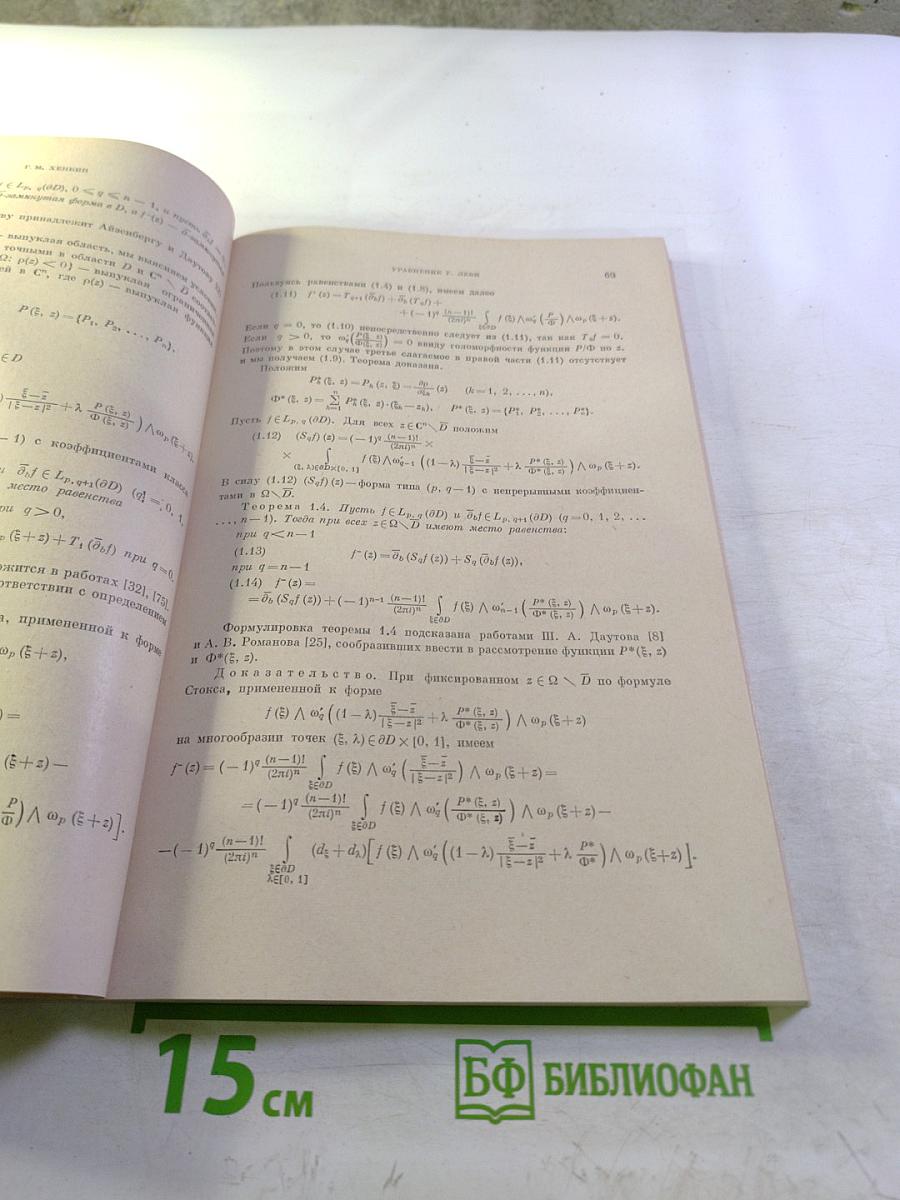 Г. М. ХЕНКИН
f ∈ L_{p, q}(∂D), 0 ⩽ q ⩽ n − 1, и пусть
принадлежит Айзенбергу и Даутову
выпуклая область, мы выясним условия
точными в области D и Cⁿ
Ω: ρ(z) < 0} — выпуклая ограниченная
в Cⁿ, где ρ(z) — выпуклая функция
P(ξ, z) = {P₁, P₂, ..., Pₙ},
∈ D
(ξ̄−z̄)/|ξ−z|² + λ P(ξ, z)/Φ(ξ, z)) ⋀ ω_p (ξ+z),
— 1) с коэффициентами класса
и ∂̄_b f ∈ L_{p, q+1}(∂D) (q = 0, 1,
место равенства
при q > 0,
(ξ+z) + T₁(∂̄_b f) при q = 0.
в работах [32], [75].
соответствии с определением
примененной к форме
ω_p (ξ+z),
) =
(ξ+z) —
P/Φ) ⋀ ω_p (ξ+z)].
УРАВНЕНИЕ Г. ЛЕВИ 69
Пользуясь равенствами (1.4) и (1.8), имеем далее
(1.11) f⁺(z) = T_{q+1}(∂̄_b f) + ∂̄_b (T_q f) +
+ (−1)^q (n−1)!/(2πi)ⁿ ∫_{ξ∈∂D} f(ξ) ⋀ ω′_q (P/Φ) ⋀ ω_p (ξ+z).
Если q = 0, то (1.10) непосредственно следует из (1.11), так как T_q f = 0.
Если q > 0, то ω′_q (P(ξ, z)/Φ(ξ, z)) = 0 ввиду голоморфности функции P/Φ по z.
Поэтому в этом случае третье слагаемое в правой части (1.11) отсутствует
и мы получаем (1.9). Теорема доказана.
Положим
P*_k (ξ, z) = P_k (z, ξ) = ∂ρ/∂ξ_k (z) (k = 1, 2, ..., n),
Φ* (ξ, z) = Σ_{k=1}^n P*_k (ξ, z)·(ξ_k − z_k), P* (ξ, z) = {P*₁, P*₂, ..., P*ₙ}.
Пусть f ∈ L_{p, q} (∂D). Для всех z ∈ Cⁿ∖D̄ положим
(1.12) (S_q f) (z) = (−1)^q (n−1)!/(2πi)ⁿ ×
× ∫_{(ξ, λ)∈∂D×[0, 1]} f(ξ) ⋀ ω′_{q−1} ((1−λ) (ξ̄−z̄)/|ξ−z|² + λ P* (ξ, z)/Φ* (ξ, z)) ⋀ ω_p (ξ+z).
В силу (1.12) (S_q f) (z) — форма типа (p, q−1) с непрерывными коэффициен-
тами в Ω∖D̄.
Теорема 1.4. Пусть f ∈ L_{p, q} (∂D) и ∂̄_b f ∈ L_{p, q+1} (∂D) (q = 0, 1, 2, ...
..., n − 1). Тогда при всех z ∈ Ω∖D̄ имеют место равенства:
при q < n − 1
(1.13) f⁻(z) = ∂̄_b (S_q f (z)) + S_q (∂̄_b f (z)),
при q = n − 1
(1.14) f⁻(z) =
= ∂̄_b (S_q f (z)) + (−1)^{n−1} (n−1)!/(2πi)ⁿ ∫_{ξ∈∂D} f (ξ) ⋀ ω′_{n−1} (P* (ξ, z)/Φ* (ξ, z)) ⋀ ω_p (ξ+z).
Формулировка теоремы 1.4 подсказана работами Ш. А. Даутова [8]
и А. В. Романова [25], сообразивших ввести в рассмотрение функции P*(ξ, z)
и Φ*(ξ, z).
Доказательство. При фиксированном z ∈ Ω ∖ D̄ по формуле
Стокса, примененной к форме
f (ξ) ⋀ ω′_q ((1−λ) (ξ̄−z̄)/|ξ−z|² + λ P* (ξ, z)/Φ* (ξ, z)) ⋀ ω_p (ξ+z)
на многообразии точек (ξ, λ) ∈ ∂D × [0, 1], имеем
f⁻(z) = (−1)^q (n−1)!/(2πi)ⁿ ∫_{ξ∈∂D} f (ξ) ⋀ ω′_q ((ξ̄−z̄)/|ξ−z|²) ⋀ ω_p (ξ+z) =
= (−1)^q (n−1)!/(2πi)ⁿ ∫_{ξ∈∂D} f (ξ) ⋀ ω′_q (P* (ξ, z)/Φ* (ξ, z)) ⋀ ω_p (ξ+z) —
— (−1)^q (n−1)!/(2πi)ⁿ ∫_{ξ∈∂D λ∈[0, 1]} (d_ξ + d_λ) [f (ξ) ⋀ ω′_q ((1−λ) (ξ̄−z̄)/|ξ−z|² + λ P*/Φ*) ⋀ ω_p (ξ+z)].
15 см
БФ БИБЛИОФАН